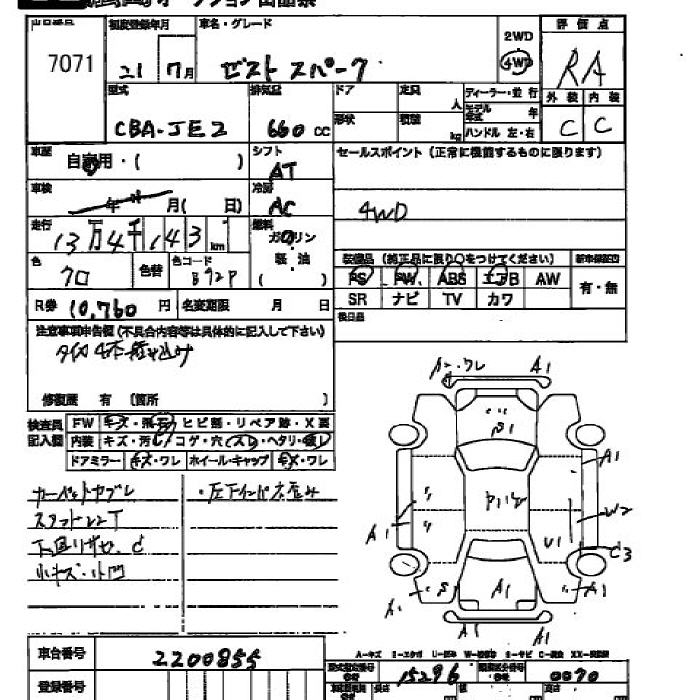 出品番号 初度登録年月 車名・グレード 評価点
7071 21 7月 ゼスト スパーク 2WD 4WD RA
型式 排気量 ドア 定員 人 ディーラー・並行 外装 内装
CBA-JE2 660 CC 形状 積載 kg モデル年式 年 ハンドル 左・右 C C
車歴 自家用・( ) シフト AT セールスポイント (正常に機能するものに限ります)
車検 年 月( 日) 冷房 AC 4WD
走行 13万4千143km 燃料 ガソリン 軽油 ( )
装備品 (純正品に限り○をつけてください) 新車保証書
色 クロ 色替 色コード B92P PS PW ABS エアB AW 有・無
R券 10,760円 名変期限 月 日 SR ナビ TV カワ
注意事項申告欄 (不具合内容等は具体的に記入して下さい) 後日品
タイヤ4本積み込み
修復歴 有 (箇所 )
検査員記入欄 FW キズ・飛石・ヒビ割・リペア跡・X要
内装 キズ・汚レ・コゲ・穴・スレ・ヘタリ・破レ
ドアミラー キズ・ワレ ホイール・キャップ キズ・ワレ
カーペットヤブレ ・左下インパネ歪み
下回りサビ、C
小キズ・小凹
A・ワレ A1
A1
A1
W2
A1 U1 C3
A1
A1 A1
A1 A1
車台番号 2200855
登録番号
A-キズ
型式指定番号 15296 類別区分番号 0070
長さ 幅 高さ